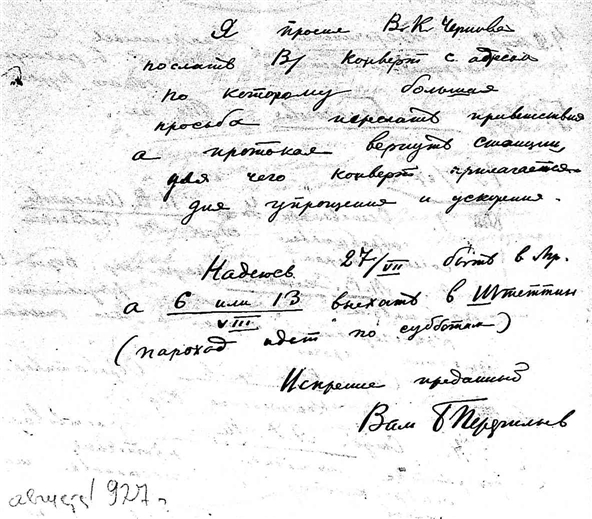 Я просил В.К. Чернова
послать В/ конверт с адреса
по которому большая
просьба переслать приветствия
а протокол вернуть станции,
для чего конверт прилагается
для упрощения и ускорения.
Надеюсь 27/VII быть в Лр.
а 6 или 13 выехать в Штеттин
VIII
(пароход идет по субботам)
Искренне преданный
Вам Б Перфильев
август 1927 г.